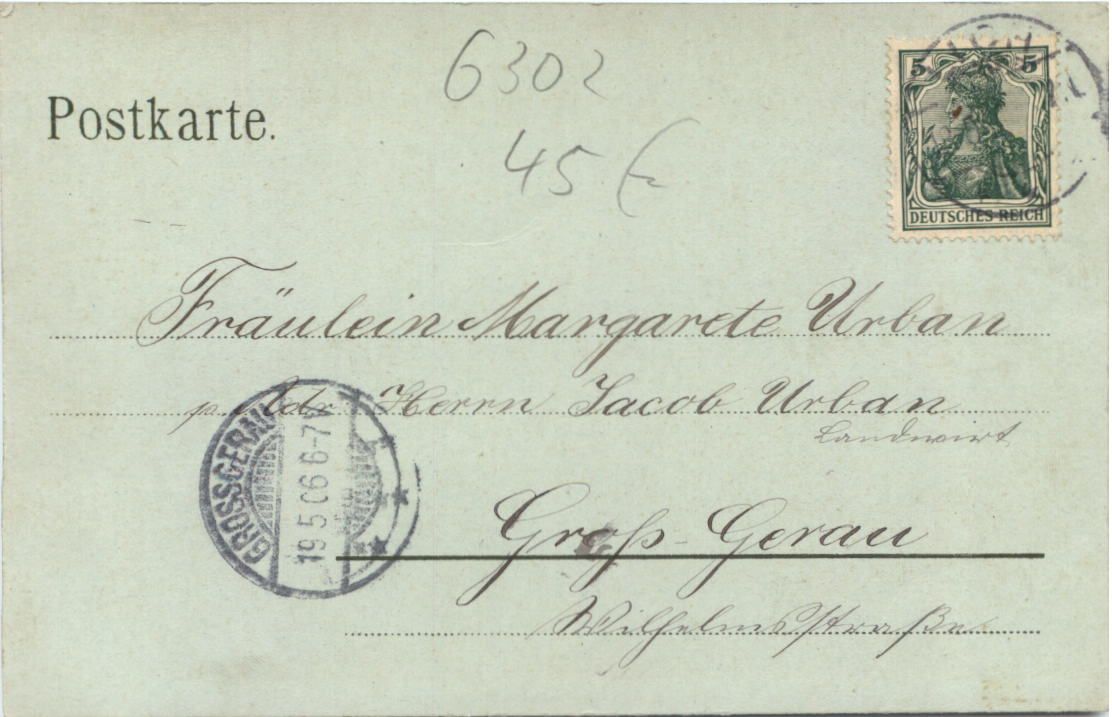 6302
Postkarte.
5 5
45 €
DEUTSCHES REICH
Fräulein Margarete Urban
p. Adr. Herrn Jacob Urban
Landwirt
GROSSGERAU
19.5.06 6-7
Groß-Gerau
Wilhelmsstraße